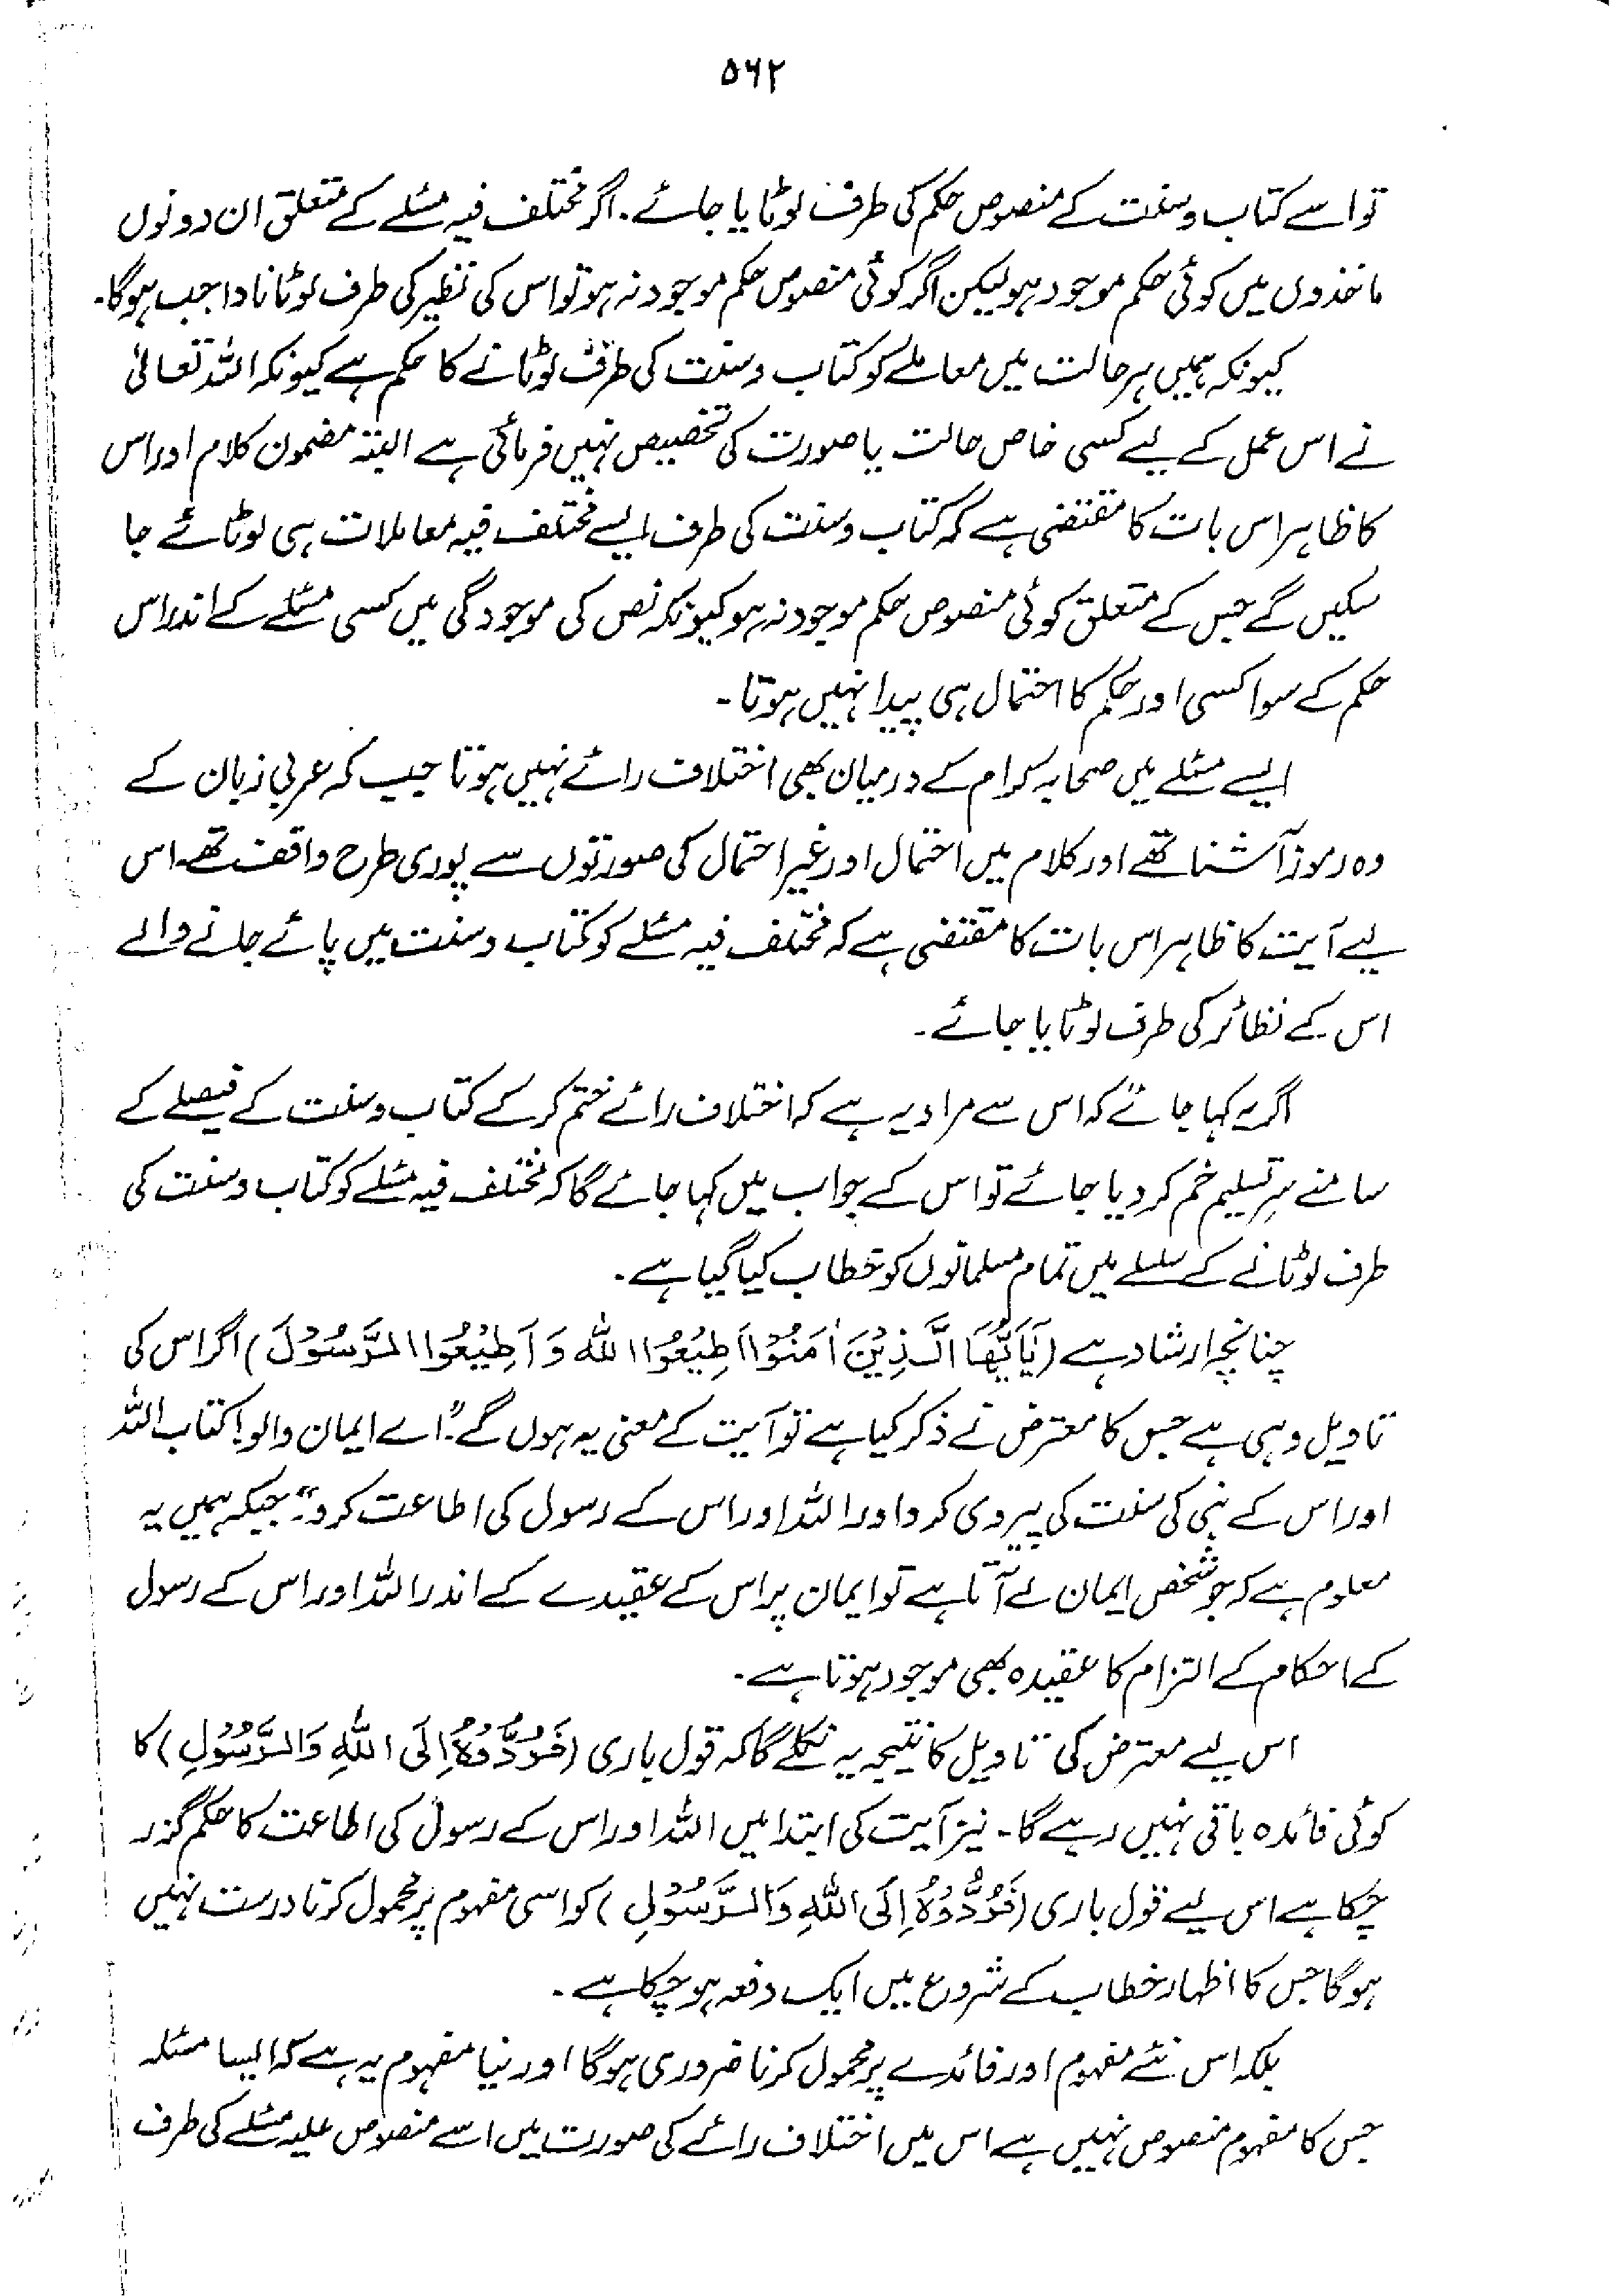 ۵۶۲
تو اسے کتاب و سنت کے منصوص حکم کی طرف لوٹایا جائے۔ اگر مختلف فیہ مسئلے کے متعلق ان دونوں
ماخذوں میں کوئی حکم موجود ہو لیکن اگر کوئی منصوص حکم موجود نہ ہو تو اس کی نظیر کی طرف لوٹانا واجب ہوگا۔
کیونکہ ہمیں ہر حالت میں معاملے کو کتاب و سنت کی طرف لوٹانے کا حکم ہے کیونکہ اللہ تعالیٰ
نے اس عمل کے لیے کسی خاص حالت یا صورت کی تخصیص نہیں فرمائی ہے البتہ مضمون کلام اور اس
کا ظاہر اس بات کا مقتضی ہے کہ کتاب و سنت کی طرف ایسے مختلف فیہ معاملات ہی لوٹائے جا
سکیں گے جس کے متعلق کوئی منصوص حکم موجود نہ ہو کیونکہ نص کی موجودگی میں کسی مسئلے کے اندر اس
حکم کے سوا کسی اور حکم کا احتمال ہی پیدا نہیں ہوتا۔
ایسے مسئلے میں صحابہ کرام کے درمیان بھی اختلاف رائے نہیں ہوتا جیب کہ عربی زبان کے
وہ رموز آشنا تھے اور کلام میں احتمال اور غیر احتمال کی صورتوں سے پوری طرح واقف تھے۔ اس
لیے آیت کا ظاہر اس بات کا مقتضی ہے کہ مختلف فیہ مسئلے کو کتاب و سنت میں پائے جانے والے
اس کے نظائر کی طرف لوٹایا جائے۔
اگر یہ کہا جائے کہ اس سے مراد یہ ہے کہ اختلاف رائے ختم کر کے کتاب و سنت کے فیصلے کے
سامنے سرِ تسلیم خم کر دیا جائے تو اس کے جواب میں کہا جائے گا کہ مختلف فیہ مسئلے کو کتاب و سنت کی
طرف لوٹانے کے سلسلے میں تمام مسلمانوں کو خطاب کیا گیا ہے۔
چنانچہ ارشاد ہے (یٰٓاَیُّھَا الَّذِیْنَ اٰمَنُوْا اَطِیْعُوا اللہَ وَ اَطِیْعُوا الرَّسُوْلَ) اگر اس کی
تاویل وہی ہے جس کا معترض نے ذکر کیا ہے تو آیت کے معنی یہ ہوں گے۔" اے ایمان والو! کتاب اللہ
اور اس کے نبی کی سنت کی پیروی کرو اور اللہ اور اس کے رسول کی اطاعت کرو۔" جبکہ ہمیں یہ
معلوم ہے کہ جو شخص ایمان لے آتا ہے تو ایمان پر اس کے عقیدے کے اندر اللہ اور اس کے رسول
کے احکام کے التزام کا عقیدہ بھی موجود ہوتا ہے۔
اس لیے معترض کی تاویل کا نتیجہ یہ نکلے گا کہ قول باری (فَرُدُّوْہُ اِلَی اللہِ وَالرَّسُوْلِ) کا
کوئی فائدہ باقی نہیں رہے گا۔ نیز آیت کی ابتدا میں اللہ اور اس کے رسول کی اطاعت کا حکم گزر
چکا ہے اس لیے قول باری (فَرُدُّوْہُ اِلَی اللہِ وَالرَّسُوْلِ) کو اسی مفہوم پر محمول کرنا درست نہیں
ہوگا جس کا اظہار خطاب کے شروع میں ایک دفعہ ہو چکا ہے۔
بلکہ اس نئے مفہوم اور فائدے پر محمول کرنا ضروری ہوگا اور نیا مفہوم یہ ہے کہ ایسا مسئلہ
جس کا مفہوم منصوص نہیں ہے اس میں اختلاف رائے کی صورت میں اسے منصوص علیہ مسئلے کی طرف